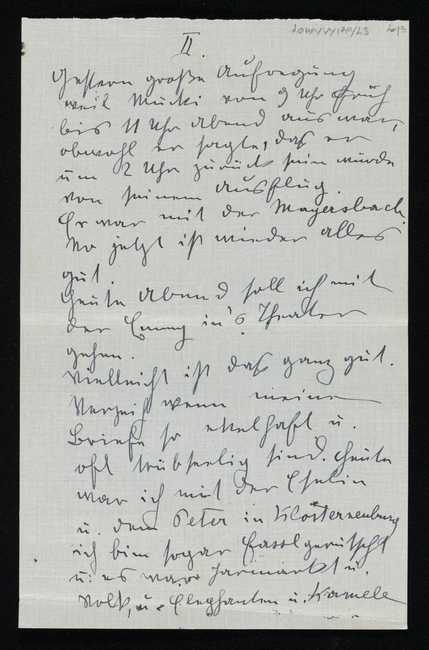 II.
Gestern große Aufregung
weil Mucki von 9 Uhr Früh
bis 11 Uhr Abend aus war,
obwohl er sagte, daß er
um 2 Uhr zurück sein würde
von seinem Ausflug.
Er war mit der Mayersbach.
No jetzt ist wieder alles
gut.
Heute Abend soll ich mit
der Emmy in's Theater
gehen.
Vielleicht ist das ganz gut.
Verzeih wenn meine
Briefe so ekelhaft u.
oft trübselig sind. Heute
war ich mit der
u. dem Peter in Klosterneuburg
ich bin sogar Fasslgerutscht
u. es war Jarmarkt u.
Volk, u. Elephanten u. Kamele